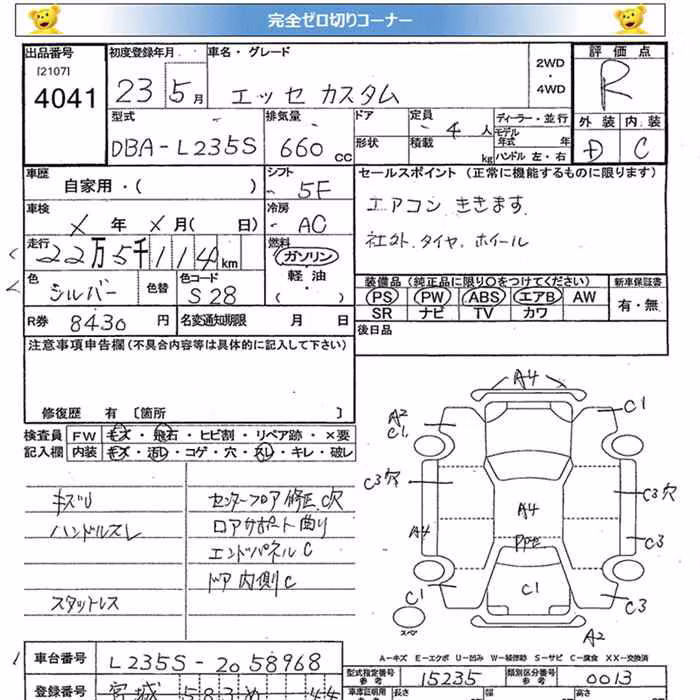 完全ゼロ切りコーナー
出品番号 [2107] 4041
初度登録年月 23 5月
車名・グレード エッセ カスタム
2WD・4WD
評価点 R
型式 DBA-L235S
排気量 660 cc
ドア 形状
定員 4人 積載 kg
ディーラー・並行
モデル年式 年
ハンドル 左・右
外装 D 内装 C
車歴 自家用・( )
シフト 5F
セールスポイント (正常に機能するものに限ります)
エアコン ききます
社外、タイヤ、ホイール
車検 X年 X月( 日)
冷房 AC
走行 22万5千114km
燃料 ガソリン 軽油 ・( )
色 シルバー 色替
色コード S28
装備品 (純正品に限り○をつけてください)
新車保証書
PS PW ABS エアB AW
有・無
SR ナビ TV カワ
R券 8430円
名変通知期限 月 日
後日品
注意事項申告欄(不具合内容等は具体的に記入して下さい)
修復歴 有 〔箇所 〕
検査員記入欄
FW キズ・飛石・ヒビ割・リペア跡・×要
内装 キズ・汚レ・コゲ・穴・スレ・キレ・破レ
キズU
ハンドルスレ
スタットレス
センターフロア修正、C穴
ロアサポート曲り
エンドパネルC
ドア内側C
A4
A2
C1
C1
C3穴
A4
A4
C3穴
C3
C1
C1
C3
スペア
A2
A-キズ E-エクボ U-凹み W-補修跡 S-サビ C-腐食 XX-交換済
車台番号 L235S-2058968
型式指定番号 参考 15235
類別区分番号 参考 0013
登録番号 宮城 583 め 44
車庫証明用 長さ 幅 高さ